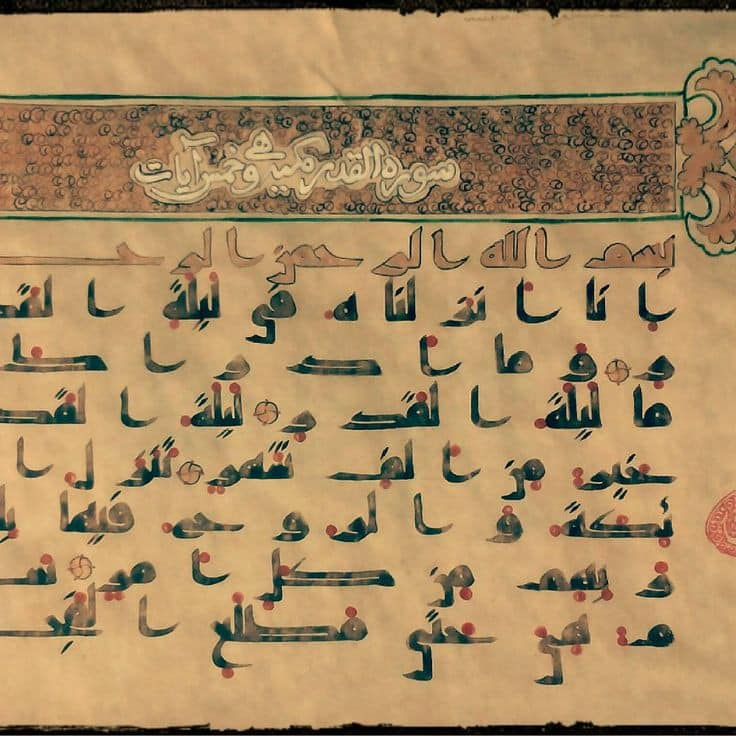 سورة القدر مكية وهي خمس آيات
بسم الله الرحمن الرحـ
انا انزلناه في ليلة القد
ر وما ادرا ك
ما ليلة القدر ليلة القد
خير من الف شهر تنزل ا
ئكة و الروح فيها با
ربهم من كل امر سـ
م هي حتى مطلع الفجـ